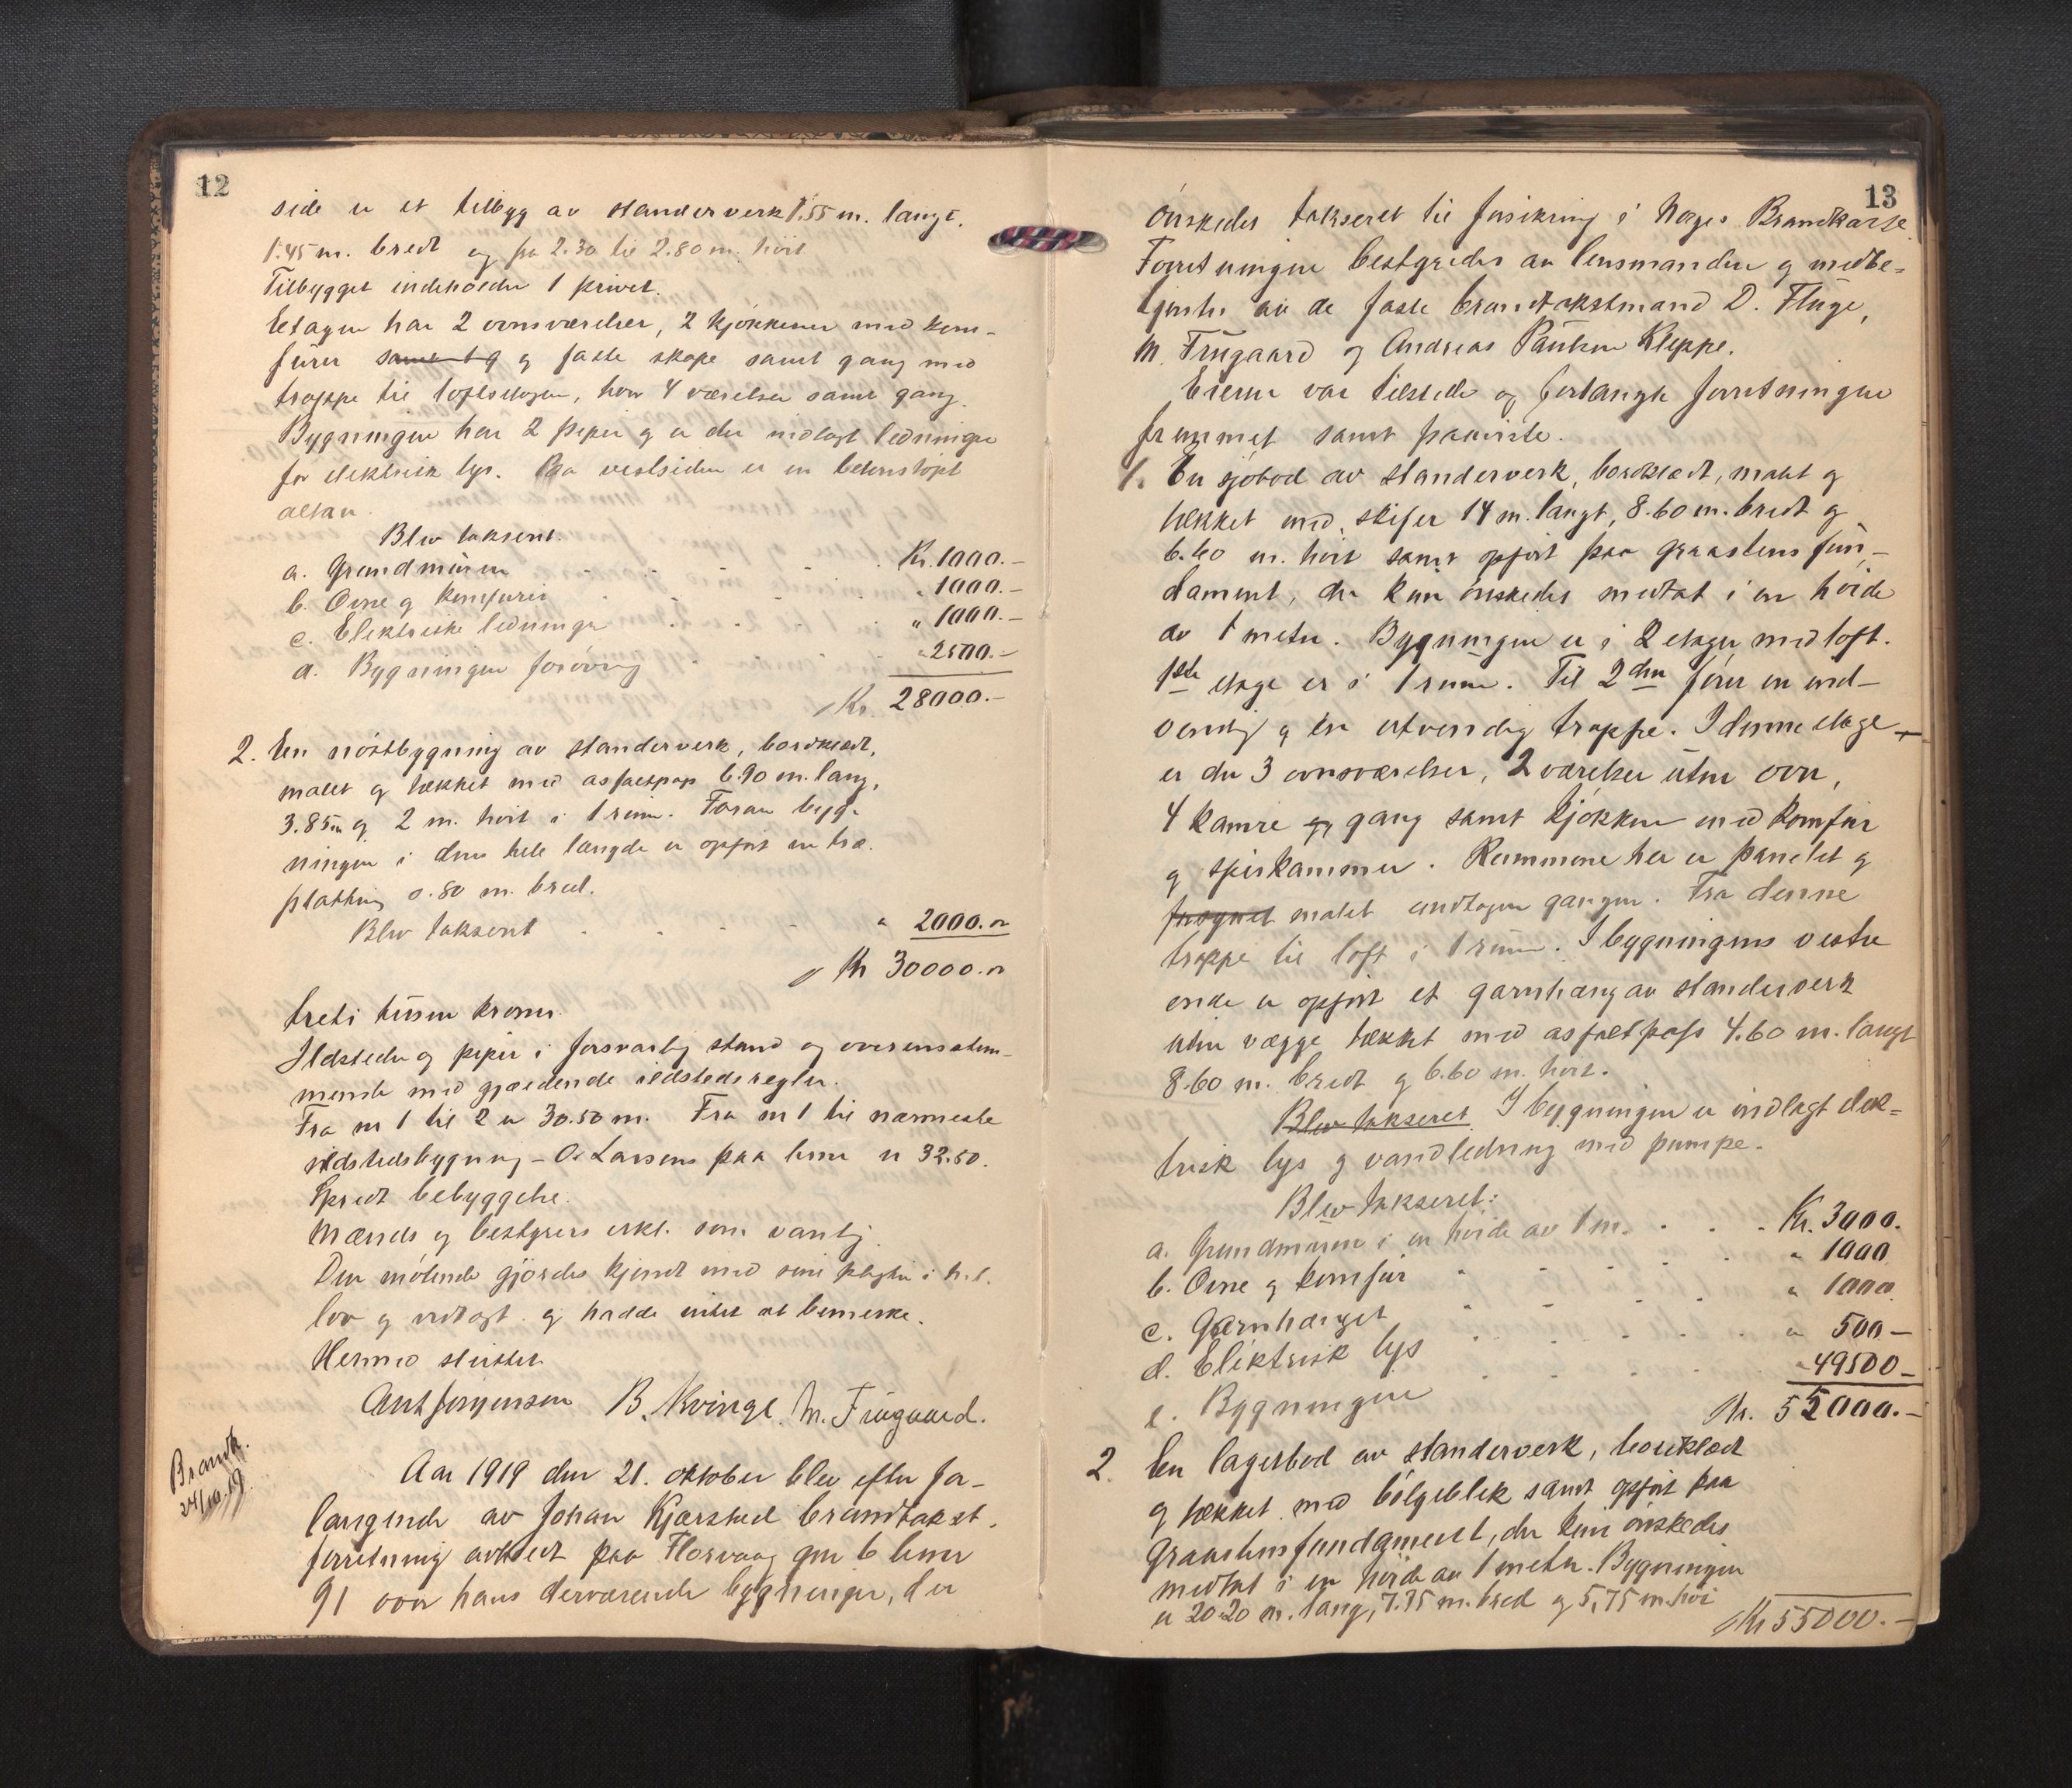 12
side er et tilbygg av standerverk 1.55 m. langt.
1.45 m. bredt og fra 2.30 til 2.80 m. höit
Tilbygget indeholder 1 privet.
Etagen har 2 ovnsværelser, 2 kjökkener med kom-
fürer samt g og faste skape samt gang med
trappe til loftsetagen, hvor 4 værelser samt gang.
Bygningen har 2 piper og er der indlagt ledninger
for elektrisk lys. Paa vestsiden er en betonstöpt
altan.
Blev taksert.
a. Grundmüren . . . . Kr. 1000.-
b. Ovne og komfürer . . . . " 1000.-
c. Elektriske ledninger . . . . " 1000.-
d. Bygningen forövrig . . . . " 2500.-
Kr. 28000.-
2. En nöstbygning av standerverk, bordklædt,
malet og tækket med asfaltpap 6.90 m. lang,
3.85 m og 2 m. höit i 1 rüm. Foran byg-
ningen i dens hele længde er opfört en træ-
platting 0.80 m. bred.
Blev taksert . . . . " 2000.-
Kr 30000.-
treti tüsen kroner.
Ildsteder og piper i forsvarlig stand og overensstem-
mende med gjældende ildstedsregler.
Fra nr 1 til 2 er 30.50 m. Fra nr 1 til nærmeste
ildstedsbygning - O. Larsens paa lnr er 32.50.
Spredt bebyggelse.
Mænds og bestyrers erkl. som vanlig.
Den mötende gjordes kjendt med sine pligter i h.t.
lov og vedtægt og hadde intet at bemerke.
Hermed sluttet
Ant Jörgensen B. Kvinge. M. Frügaard.
Brandk.
24/10.19.
Aar 1919 den 21. oktober blev efter for-
langende av Johan Kjærsted brandtakst-
forretning avholdt paa Florvaag gnr 6 bnr
91 over hans derværende bygninger, der
13
önskedes takseret til forsikring i Norges Brandkasse.
Forretningen bestyredes av lensmanden og medbe-
tjentes av de faste brandtakstmænd D. Flüge,
M. Frügaard og Andreas Paülsen Kleppe.
Eieren var tilstede og forlangte forretningen
fremmet samt paaviste.
1. En sjöbod av standerverk, bordklædt, malet og
tækket med skifer 14 m. langt, 8.60 m. bredt og
6.60 m. höit samt opfört paa graastens fün-
dament, der kün önskedes medtat i en höide
av 1 meter. Bygningen er i 2 etager med loft.
1ste etage er i 1 rüm. Til 2den förer en ind-
vendig og en utvendig trappe. I denne etage
er der 3 ovnsværelser, 2 værelser üten ovn,
4 kamre og gang samt kjökken med komfür
og spiskammer. Rummene her er panelet og
malet undtagen gangen. Fra denne
trappe til loft i 1 rüm. I bygningens vestre
ende er opfört et garnhæng av standerverk
uten vægge tækket med asfaltpap 4.60 m. langt
8.60 m. bredt og 6.60 m. höit.
Blev takseret I bygningen er indlagt elek-
trisk lys og vandledning med pumpe.
Blev takseret:
a. Grundmüren i en höide av 1 m. . . . Kr. 3000.
b. Ovne og komfür . . . . " 1000
c. Garnhænget . . . . " 1000
d. Elektrisk lys . . . . " 500 -
e. Bygningen . . . . " 49500 -
Kr. 55000.-
2. En lagerbod av standerverk, bordklædt
og tækket med bölgeblik samt opfört paa
graastensfundament, der kün önskedes
medtat i en höide av 1 meter. Bygningen
er 20.20 m. lang, 7.75 m. bred og 5,75 m. höi
Kr 55000.-